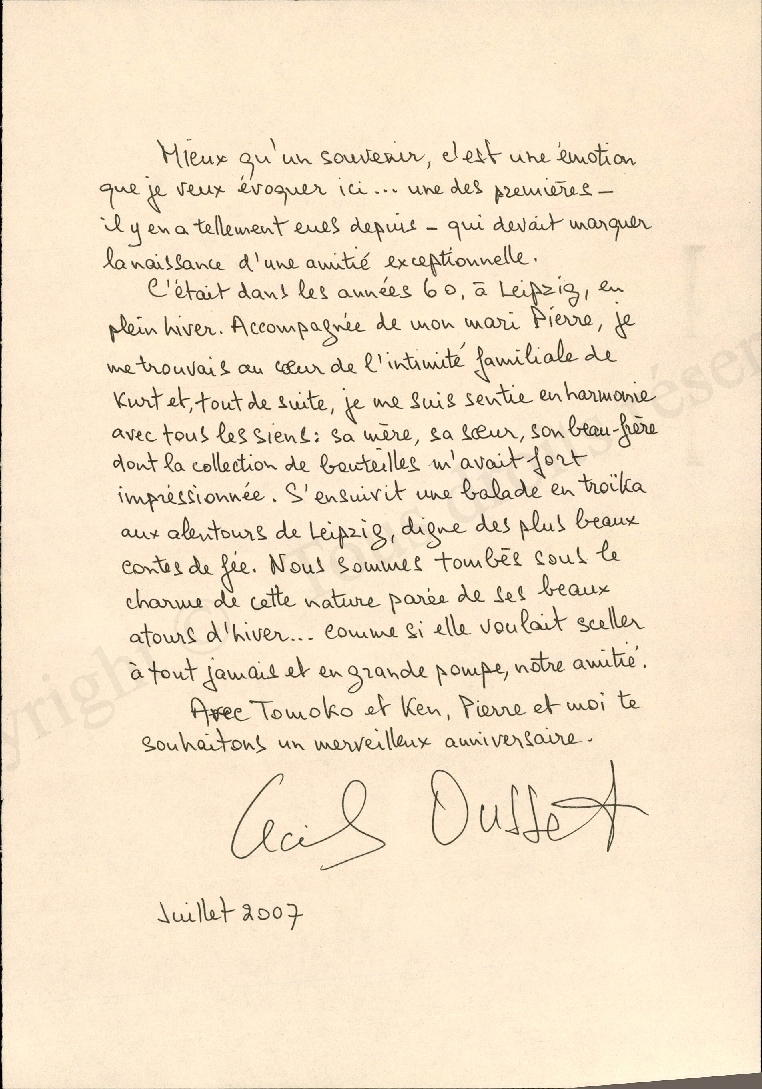 Mieux qu'un souvenir, c'est une émotion
que je veux évoquer ici... une des premières –
il y en a tellement eues depuis – qui devait marquer
la naissance d'une amitié exceptionnelle.
C'était dans les années 60, à Leipzig, en
plein hiver. Accompagnée de mon mari Pierre, je
me trouvais au cœur de l'intimité familiale de
Kurt et, tout de suite, je me suis sentie en harmonie
avec tous les siens : sa mère, sa sœur, son beau-frère
dont la collection de bouteilles m'avait fort
impressionnée. S'ensuivit une balade en troïka
aux alentours de Leipzig, digne des plus beaux
contes de fée. Nous sommes tombés sous le
charme de cette nature parée de ses beaux
atours d'hiver... comme si elle voulait sceller
à tout jamais et en grande pompe, notre amitié.
Avec Tomoko et Ken, Pierre et moi te
souhaitons un merveilleux anniversaire.
Cécile Ousset
Juillet 2007